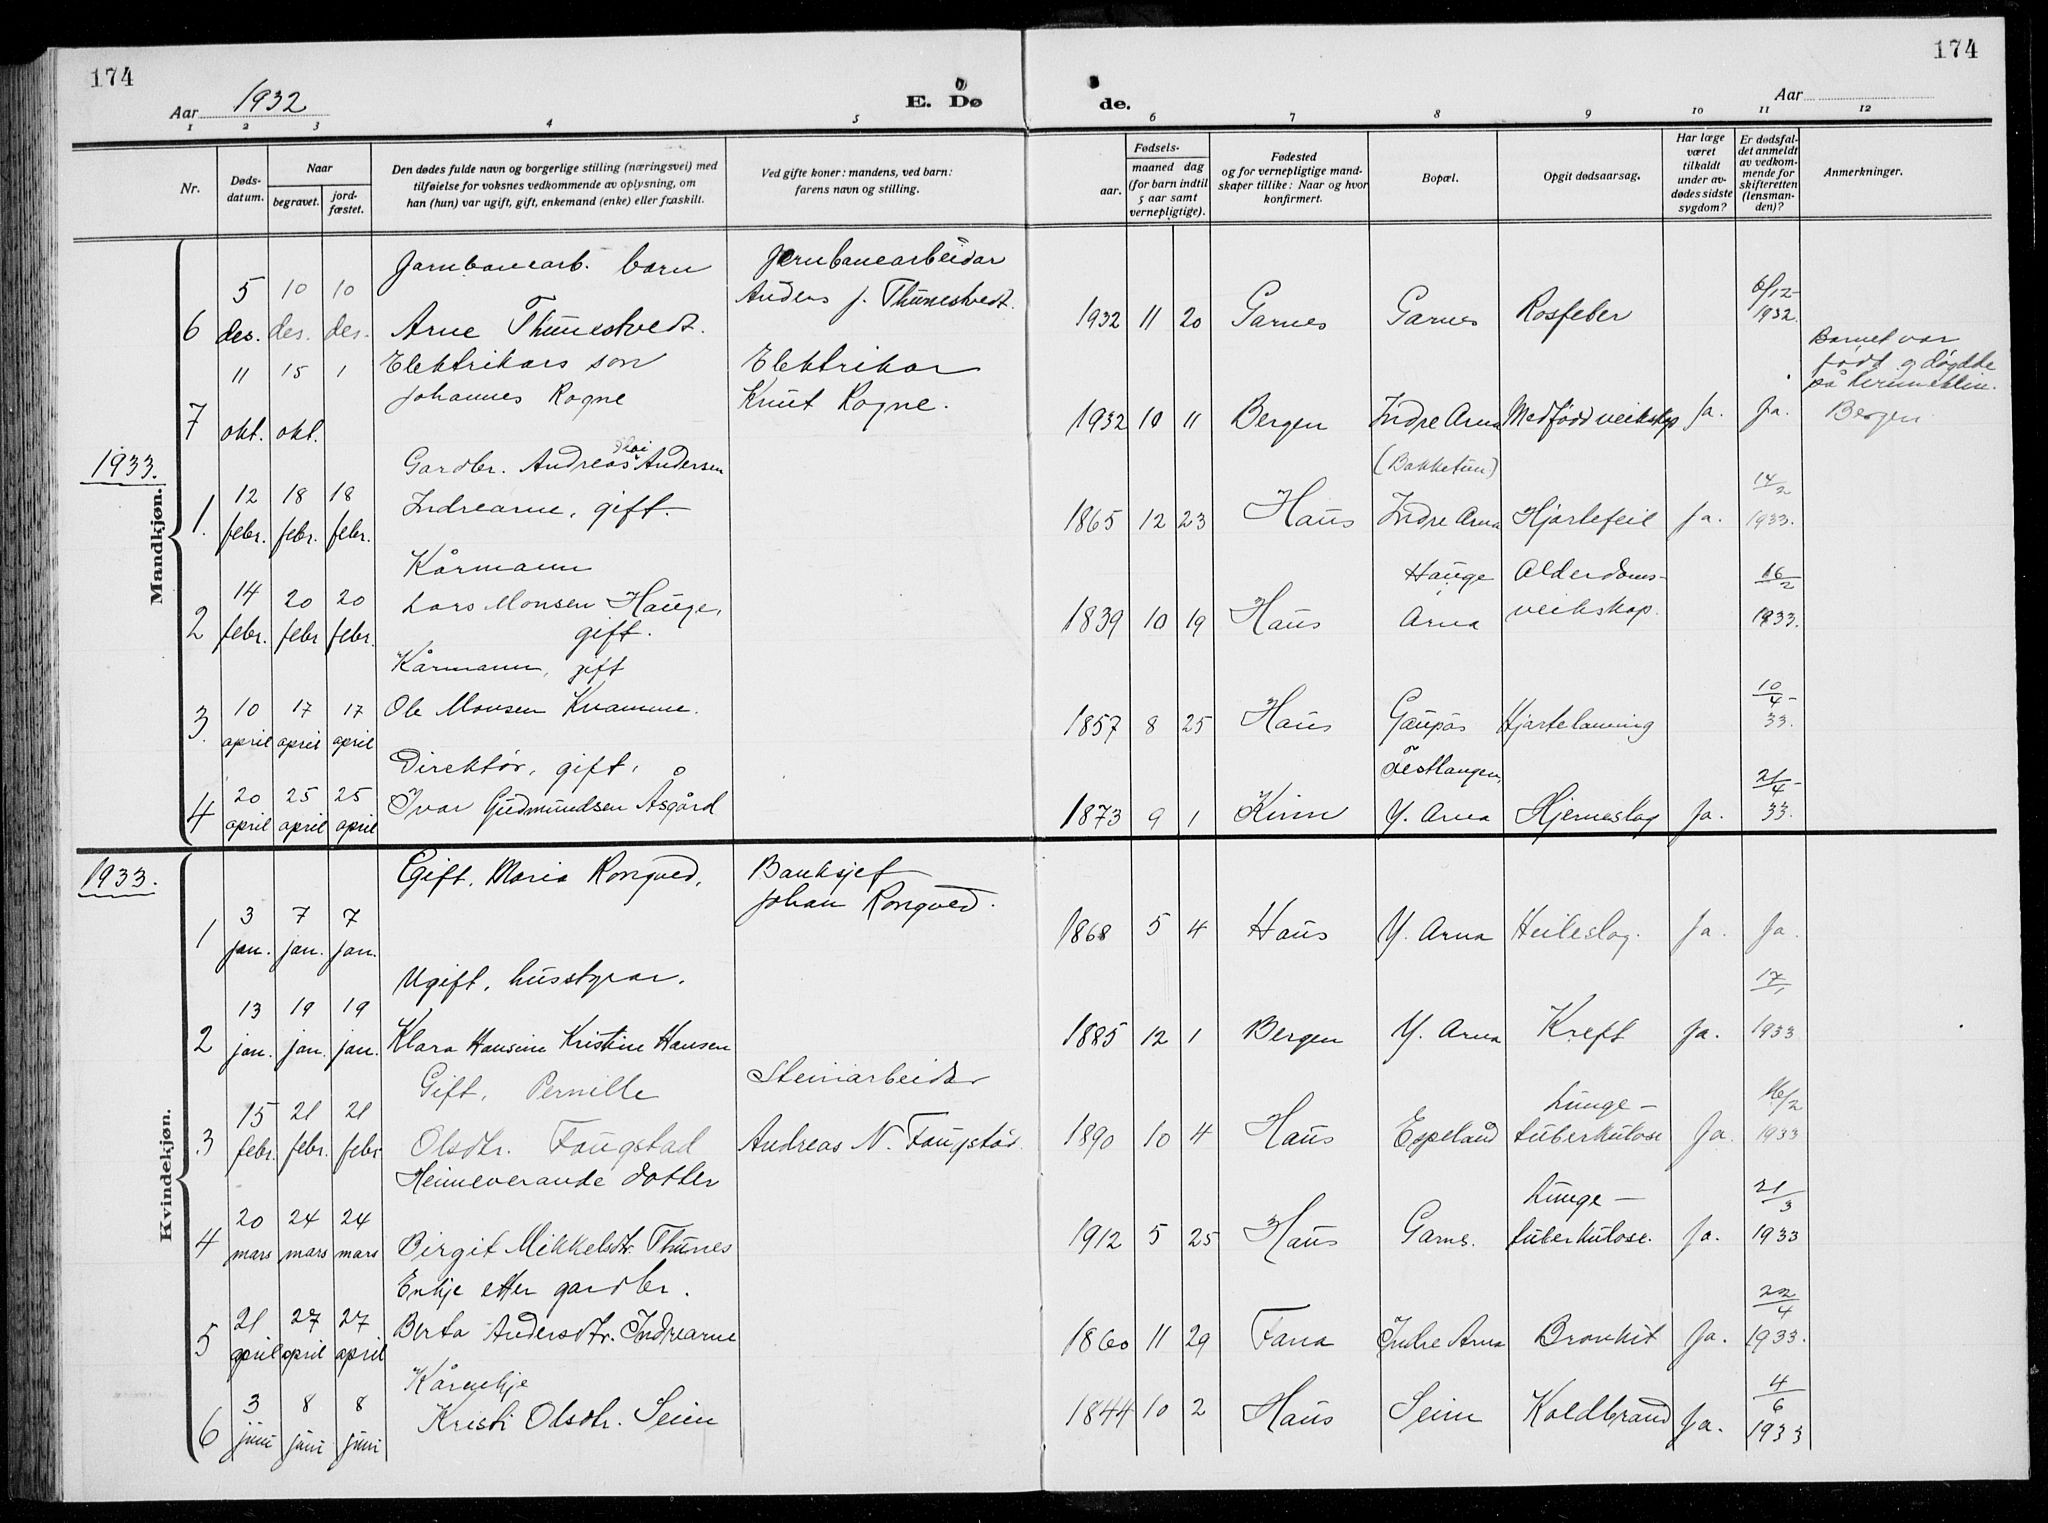 174
Aar 1932
E. Dø
de.
Aar
174
1 2 3 4 5 6 7 8 9 10 11 12
Nr.
Døds-
datum.
Naar
begravet.
jord-
fæstet.
Den dødes fulde navn og borgerlige stilling (næringsvei) med
tilføielse for voksnes vedkommende av oplysning, om
han (hun) var ugift, gift, enkemand (enke) eller fraskilt.
Ved gifte koner: mandens, ved barn:
farens navn og stilling.
Fødsels-
aar.
maaned dag
(for barn indtil
5 aar samt
vernepligtige).
Fødested
og for vernepligtige mand-
skaper tillike: Naar og hvor
konfirmert.
Bopæl.
Opgit dødsaarsag.
Har læge
været
tilkaldt
under av-
dødes sidste
sygdom?
Er dødsfal-
det anmeldt
av vedkom-
mende for
skifteretten
(lensman-
den)?
Anmerkninger.
Mandkjøn.
Jarnbanearb. barn Jernbanearbeidar
5 10 10 Anders J. Thunestvedt. 6/12-
6 des. des. des. Arne Thunestvedt. 1932 11 20 Garnes Garnes Rosfeber 1932.
11 15 1 Elektrikars son Elektrikar Barnet var
født og døydde
på kvinneklin.
Johannes Rogne Knut Rogne.
7 okt. okt. 1932 10 11 Bergen Indre Arna Medfødd veikskap Ja. Ja. Bergen
1933.
Gardbr. Andreas Andersen (Bakketun)
12 18 18 14/2
1. febr. febr. febr. Indrearne, gift. 1865 12 23 Haus Indre Arna Hjartefeil Ja. 1933.
Kårmann Hauge Alderdoms- 16/2
14 20 20 Lars Monsen Hauge, veikskap.
2 febr. febr febr. gift. 1839 10 19 Haus Arna 1933.
Kårmann, gift
10 17 17 Ole Monsen Kvamme. 10/4-
3. april april april 1857 8 25 Haus Gaupås Hjartelamning 33.
Direktør, gift, 21/4-
20 25 25 Ivar Gudmundsen Åsgård
4 april april april 1873 9 1 Kinn Y. Arna Hjerneslag Ja. 33.
1933.
Kvindekjøn.
Gift. Maria Rongved, Banksjef
3 7 7 Johan Rongved.
1 jan. jan. jan. 1868 5 4 Haus Y. Arna Heileslag. Ja. Ja.
Ugift, husstyrar. 17/1
13 19 19
2 jan. jan. jan. Klara Hansine Kristine Hansen 1885 12 1 Bergen Y. Arna Kreft Ja. 1933
Gift, Pernille Steinarbeidar Lunge- 16/2
15 21 21
3 febr. febr. febr Olsdtr. Faugstad Andreas N. Faugstad. 1890 10 4 Haus Espeland tuberkulose Ja. 1933
Heimeverande dotter Lunge- 21/3
20 24 24
4 mars mars mars Birgit Mikkelsdtr. Thunes 1912 5 25 Haus Garnes. tuberkulose. Ja. 1933
Enkje etter gardbr. 22/4
21 27 27
5 april april april Berta Andersdtr. Indrearne 1860 11 29 Fana Indre Arna Bronkit Ja. 1933.
Kårenkje 4/6
3 8 8
6 juni juni juni Kristi Olsdtr. Seim 1844 10 2 Haus Seim Koldbrand Ja. 1933